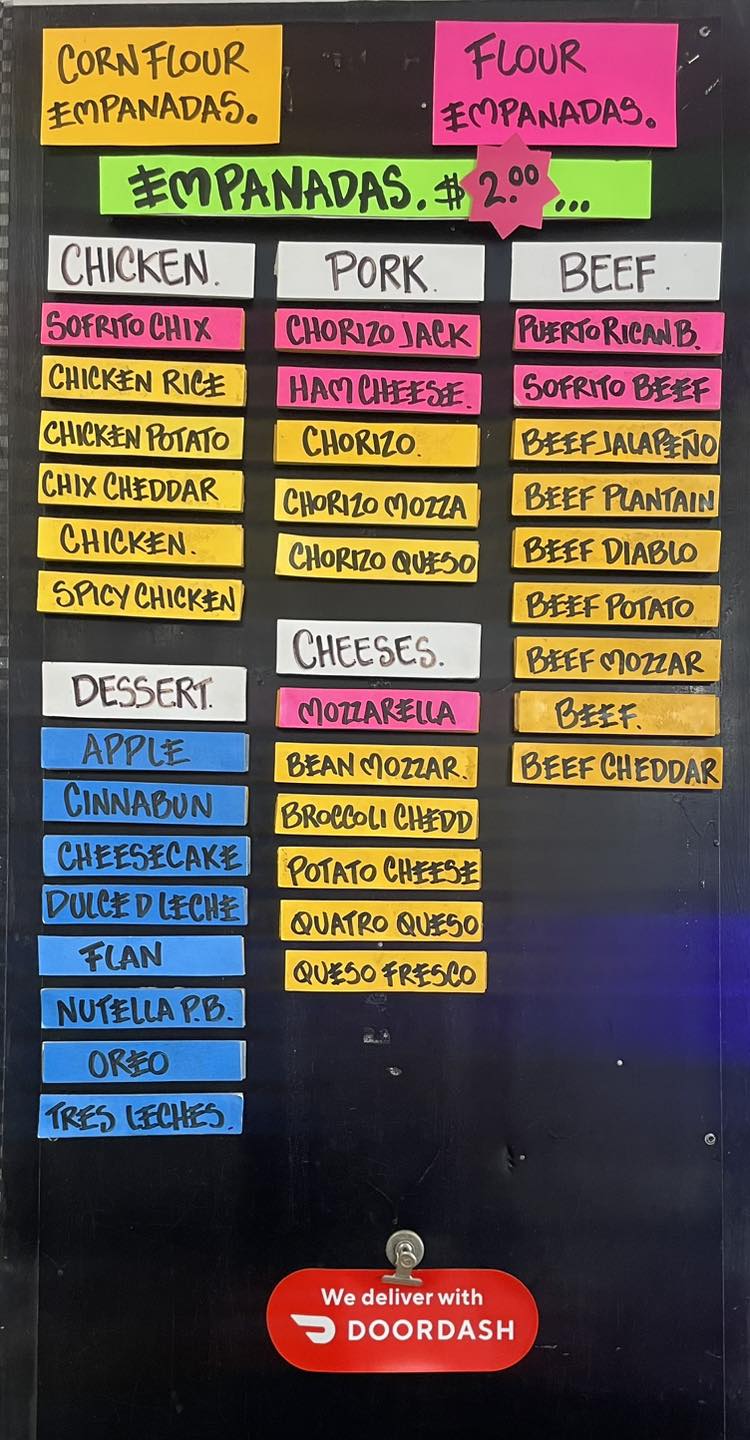 CORN FLOUR
EMPANADAS.
FLOUR
EMPANADAS.
EMPANADAS. $2.00...
CHICKEN.
SOFRITO CHIX
CHICKEN RICE
CHICKEN POTATO
CHIX CHEDDAR
CHICKEN.
SPICY CHICKEN
DESSERT.
APPLE
CINNABUN
CHEESECAKE
DULCE D LECHE
FLAN
NUTELLA P.B.
OREO
TRES LECHES.
PORK.
CHORIZO JACK
HAM CHEESE.
CHORIZO.
CHORIZO MOZZA
CHORIZO QUESO
CHEESES.
MOZZARELLA
BEAN MOZZAR.
BROCCOLI CHEDD
POTATO CHEESE
QUATRO QUESO
QUESO FRESCO
BEEF.
PUERTO RICAN B.
SOFRITO BEEF
BEEF JALAPEÑO
BEEF PLANTAIN
BEEF DIABLO
BEEF POTATO
BEEF MOZZAR
BEEF.
BEEF CHEDDAR
We deliver with
DOORDASH